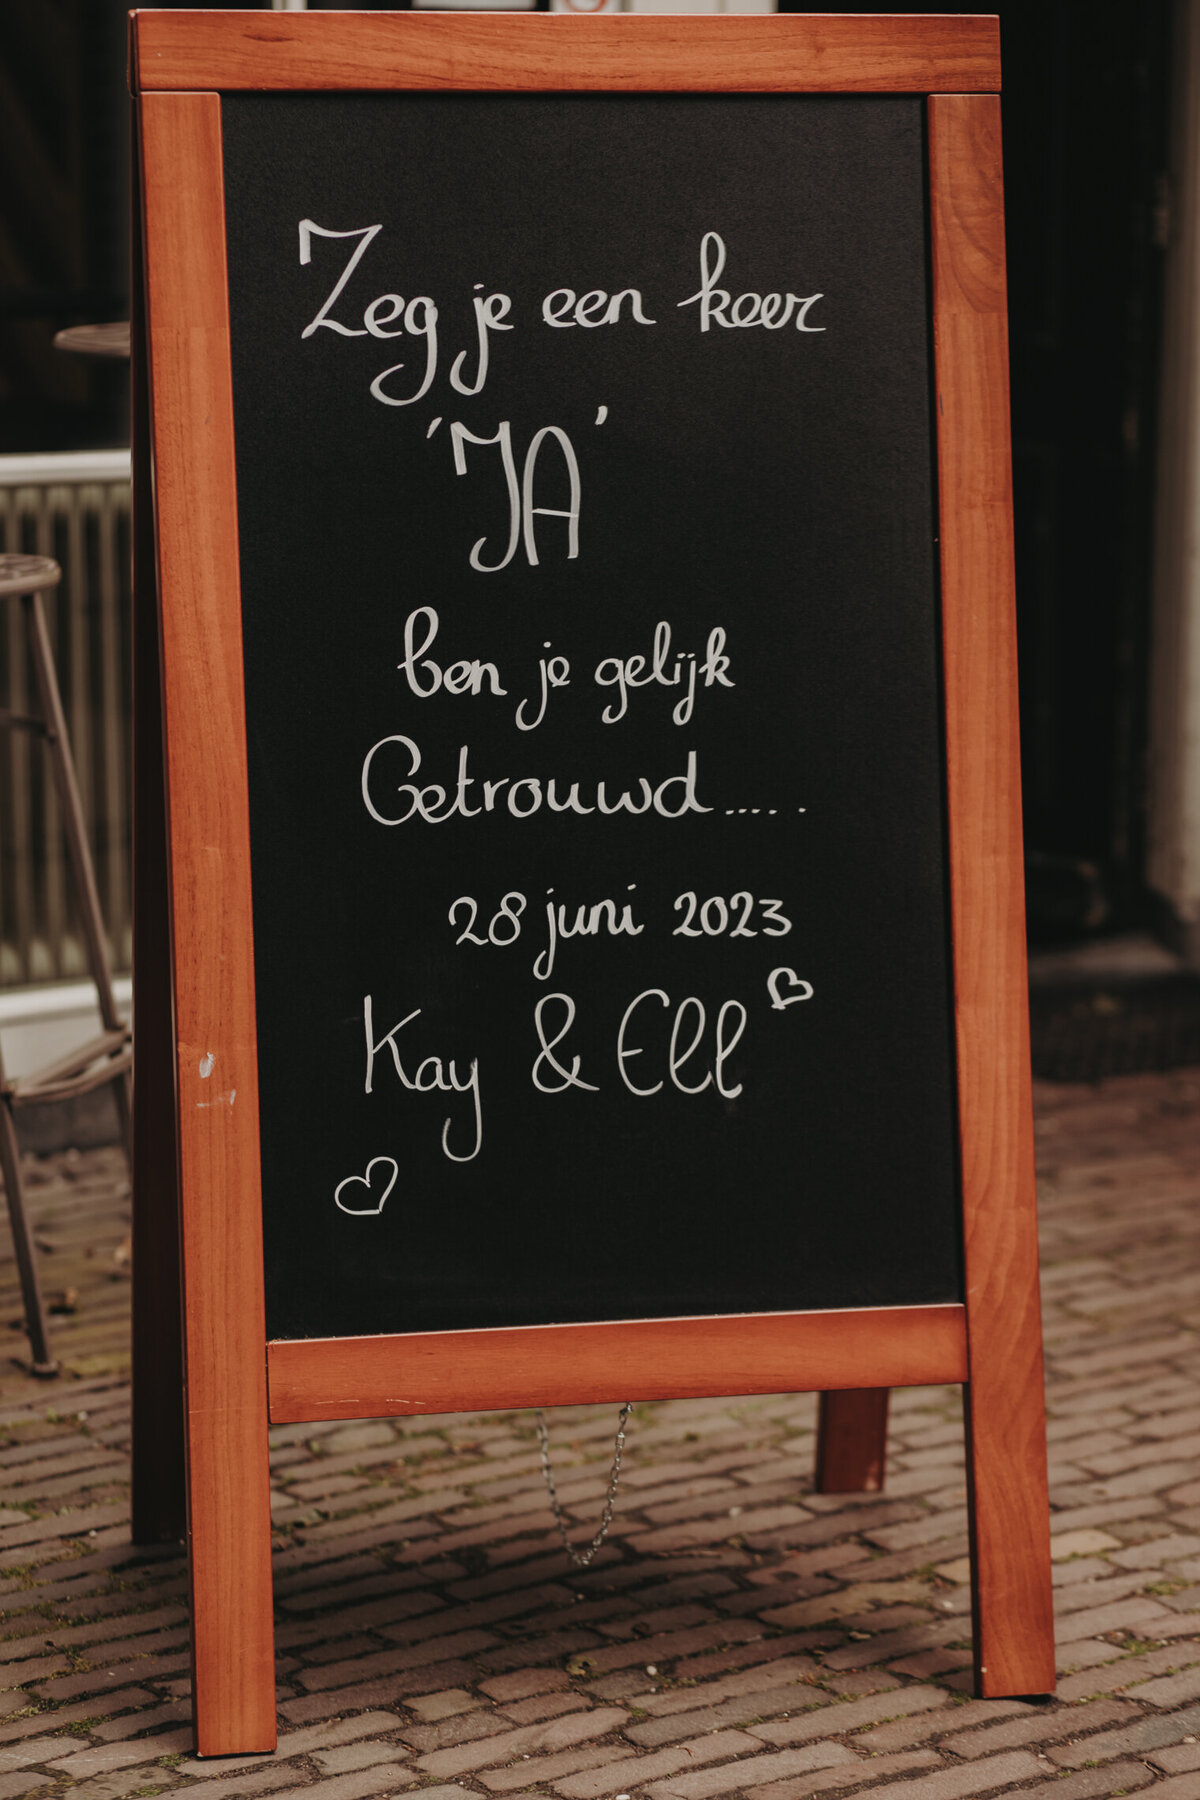 Zeg je een keer
'JA'
ben je gelijk
Getrouwd.....
28 juni 2023
Kay & Ell